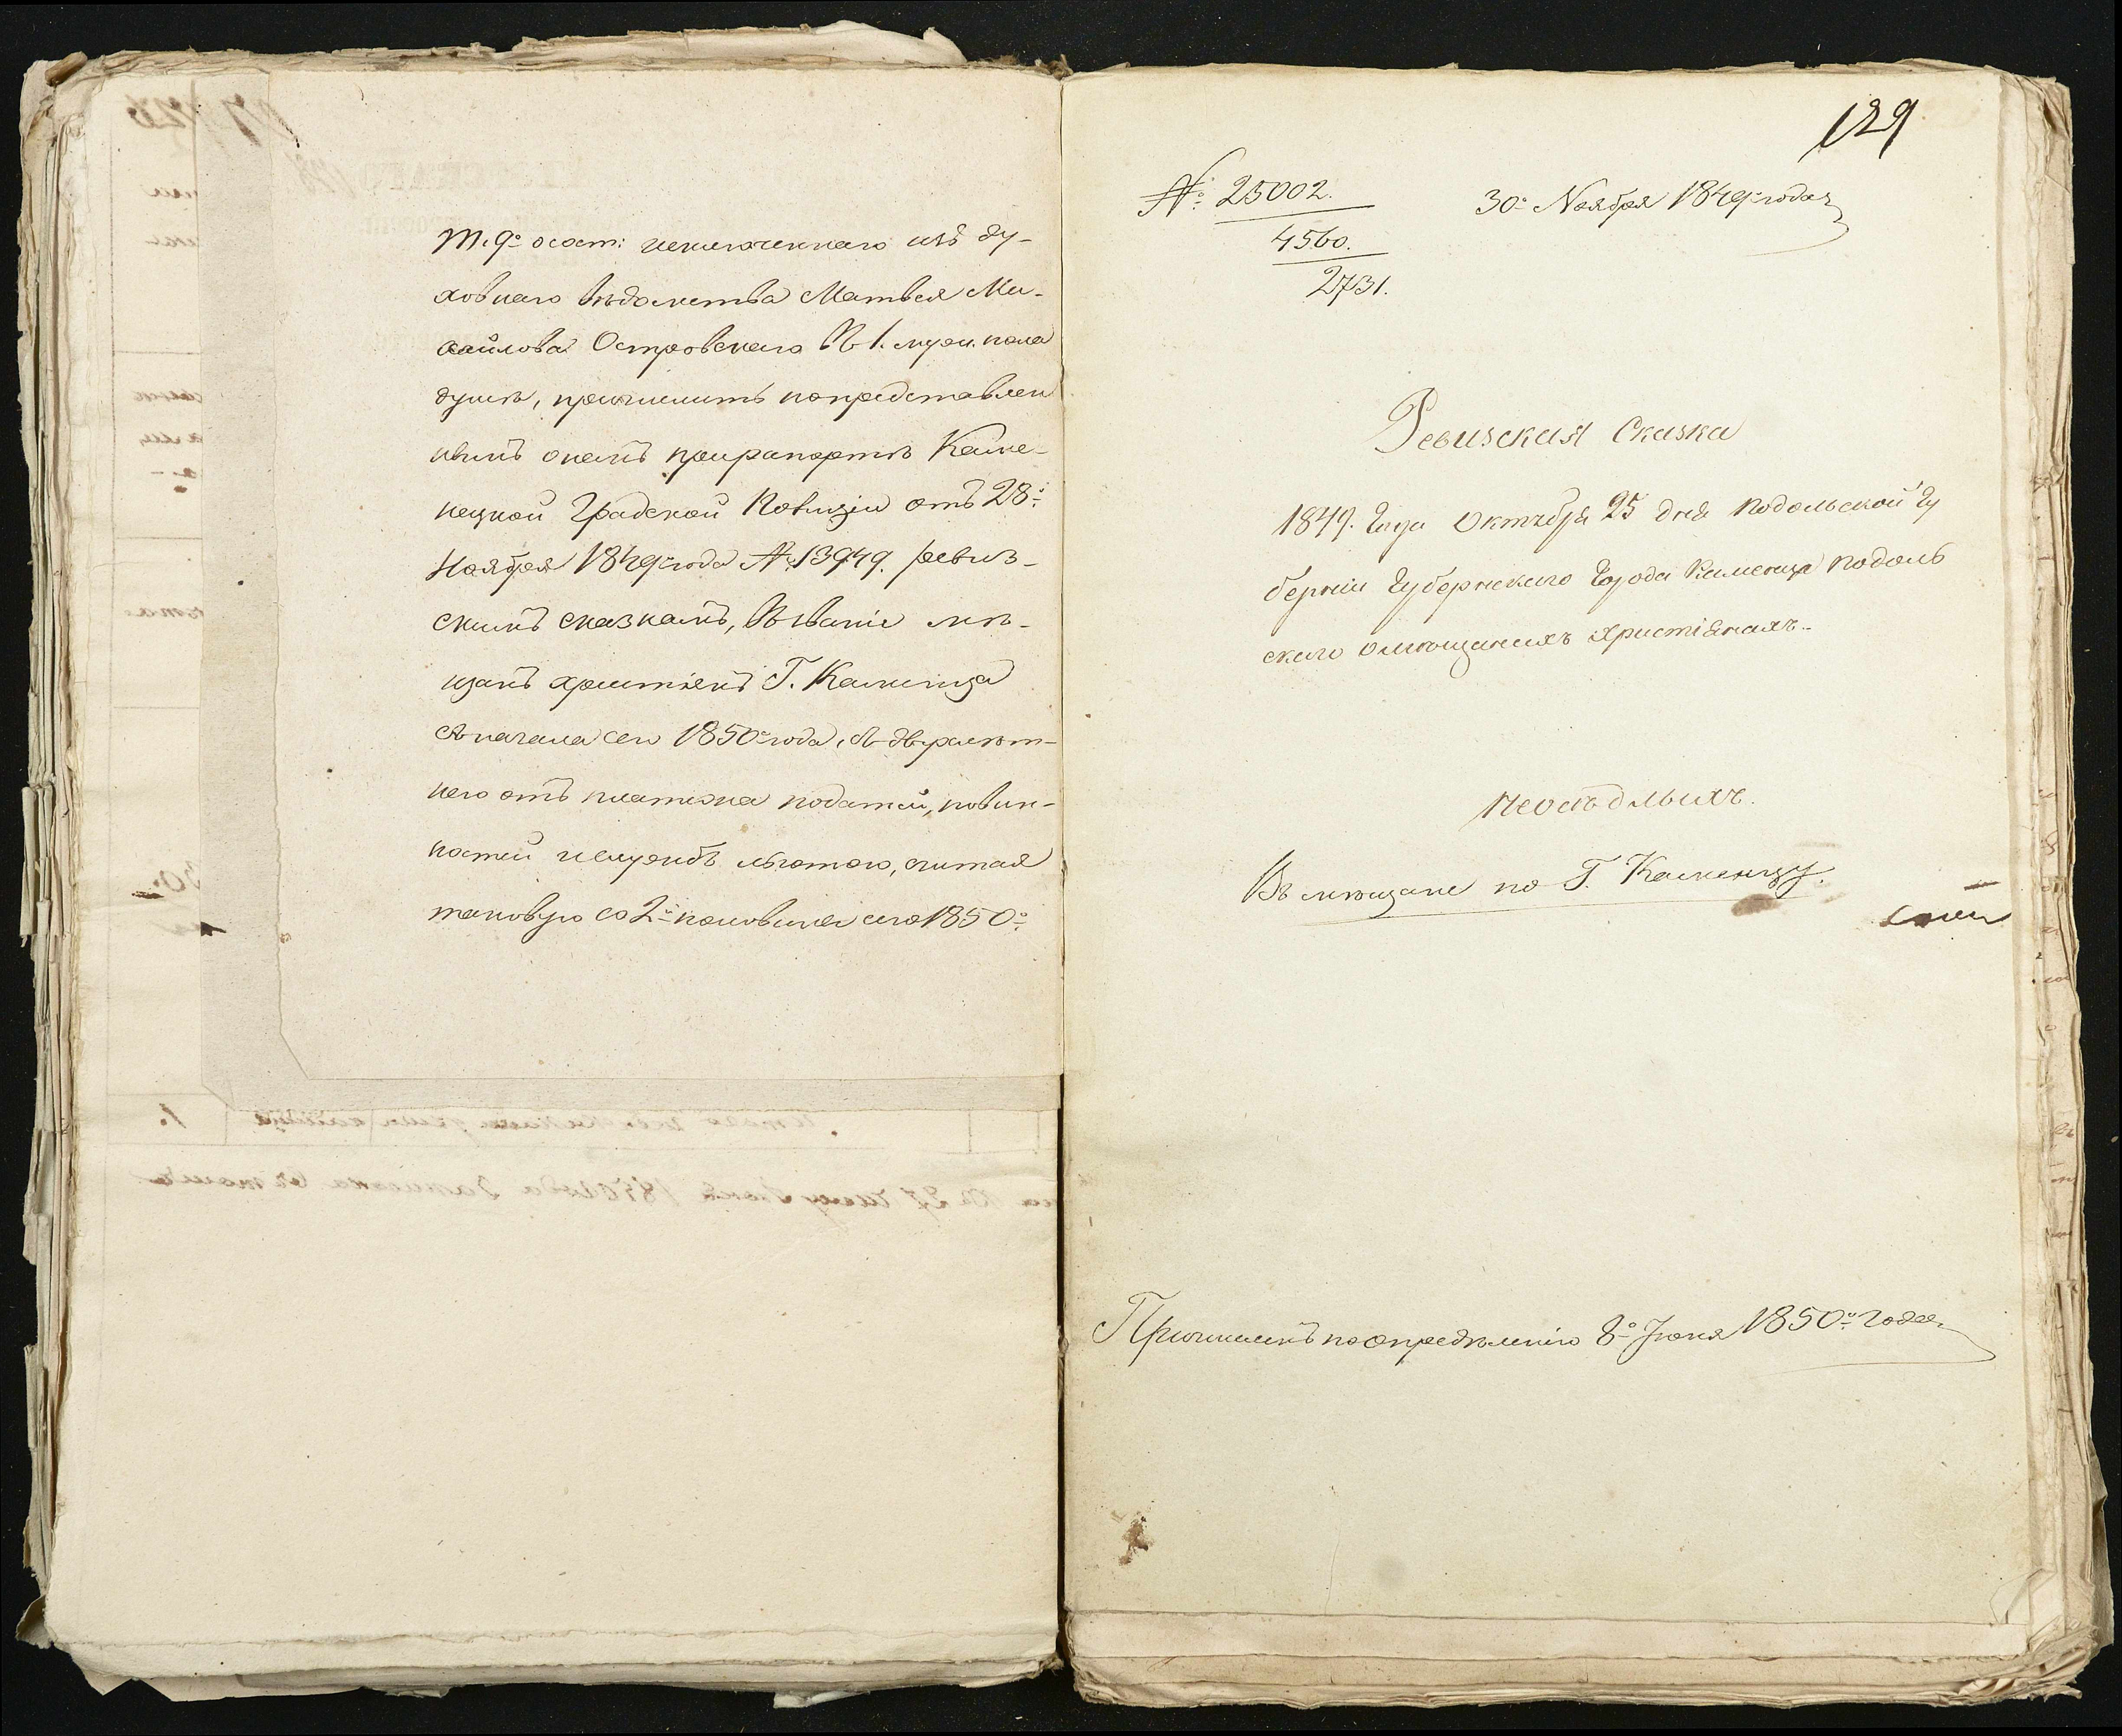 т. 9º сост: исключеннаго изъ ду-
ховнаго вѣдомства Матвея Ми-
хайлова Островскаго въ 1. муж. пола
душѣ, причислить по представлен
нымъ онымъ при рапортѣ Каме-
нецкой Градской Полиціи отъ 28º:
Ноября 1849º года № 13949. ревиз-
скимъ сказкамъ, въ званіе мѣ-
щанъ христіянъ Г. Каменца
съ начала сего 1850º года, съ
него отъ платежа податей, повин-
ностей и службъ льготою, считая
таковую со 2й половины сего 1850º:
129
№: 25002.
4560.
2731.
30º Ноября 1849º года
Ревизская Сказка
1849. Года Октября 25 дня Подольской Гу
берніи Губернскаго Города Каменца Подоль
скаго о мѣщанахъ христіянахъ.
Неосѣдлыхъ.
Въ мѣщане по Г. Каменцу.
Причисленъ по опредѣленію 8º Іюня 1850º: года.